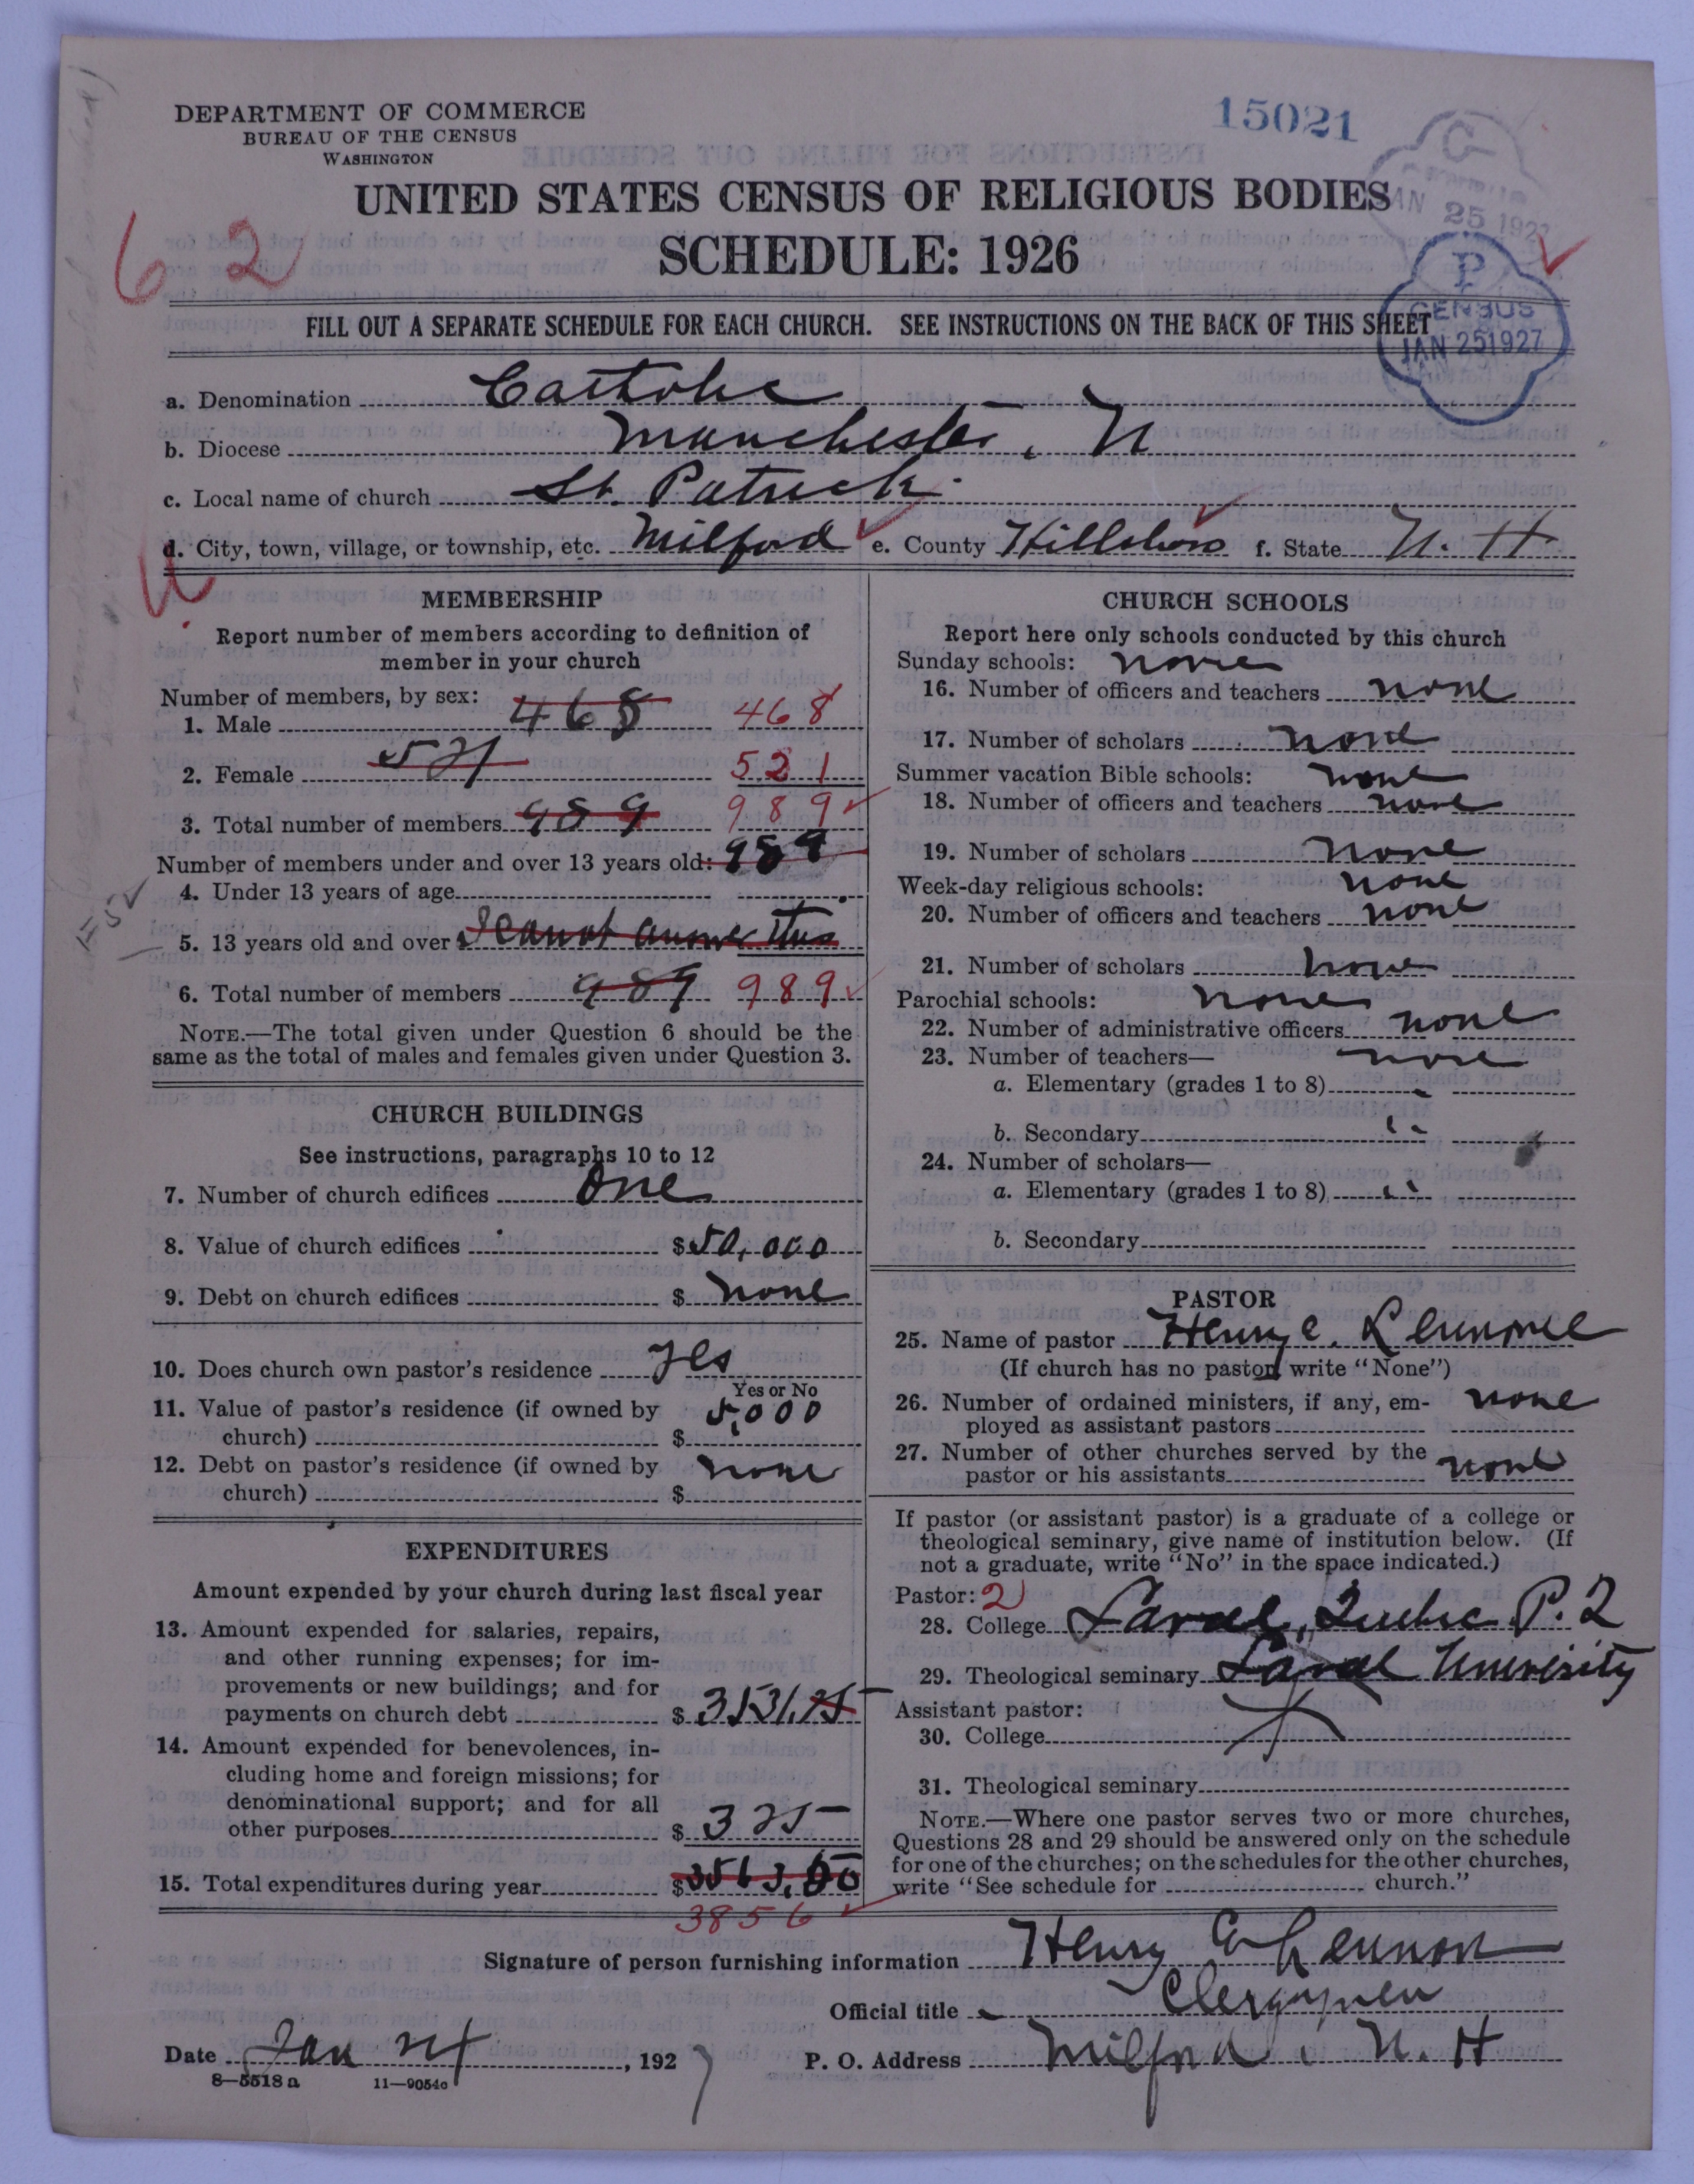 DEPARTMENT OF COMMERCE
BUREAU OF THE CENSUS
WASHINGTON
15021
UNITED STATES CENSUS OF RELIGIOUS BODIES
SCHEDULE: 1926
62
JAN 25 1927
P
CENSUS
JAN 25 1927
FILL OUT A SEPARATE SCHEDULE FOR EACH CHURCH. SEE INSTRUCTIONS ON THE BACK OF THIS SHEET
a. Denomination Catholic
b. Diocese Manchester, N
c. Local name of church St. Patrick
d. City, town, village, or township, etc. Milford e. County Hillsboro f. State N. H
MEMBERSHIP
Report number of members according to definition of
member in your church
Number of members, by sex:
1. Male 468 468
2. Female 521 521
3. Total number of members 989 989
Number of members under and over 13 years old: 989
4. Under 13 years of age
5. 13 years old and over I cannot answer this
6. Total number of members 989 989
NOTE.—The total given under Question 6 should be the
same as the total of males and females given under Question 3.
CHURCH BUILDINGS
See instructions, paragraphs 10 to 12
7. Number of church edifices One
8. Value of church edifices $50,000
9. Debt on church edifices $ none
10. Does church own pastor's residence Yes
Yes or No
11. Value of pastor's residence (if owned by
church) $ 5,000
12. Debt on pastor's residence (if owned by
church) $ none
EXPENDITURES
Amount expended by your church during last fiscal year
13. Amount expended for salaries, repairs,
and other running expenses; for im-
provements or new buildings; and for
payments on church debt $ 3531.75
14. Amount expended for benevolences, in-
cluding home and foreign missions; for
denominational support; and for all
other purposes $ 325
15. Total expenditures during year $
3856
CHURCH SCHOOLS
Report here only schools conducted by this church
Sunday schools: none
16. Number of officers and teachers none
17. Number of scholars none
Summer vacation Bible schools: none
18. Number of officers and teachers none
19. Number of scholars none
Week-day religious schools: none
20. Number of officers and teachers none
21. Number of scholars none
Parochial schools: none
22. Number of administrative officers none
23. Number of teachers— none
a. Elementary (grades 1 to 8)
b. Secondary
24. Number of scholars—
a. Elementary (grades 1 to 8)
b. Secondary
PASTOR
25. Name of pastor Henry E.
(If church has no pastor write "None")
26. Number of ordained ministers, if any, em-
ployed as assistant pastors none
27. Number of other churches served by the
pastor or his assistants none
If pastor (or assistant pastor) is a graduate of a college or
theological seminary, give name of institution below. (If
not a graduate, write "No" in the space indicated.)
Pastor: 2
28. College Laval, Quebec P. Q
29. Theological seminary Laval University
Assistant pastor:
30. College
31. Theological seminary
NOTE.—Where one pastor serves two or more churches,
Questions 28 and 29 should be answered only on the schedule
for one of the churches; on the schedules for the other churches,
write "See schedule for church."
Signature of person furnishing information Henry E Lennon
Official title Clergyman
Date Jan 24, 1927 P. O. Address Milford, N. H
8—5518a 11—9054c